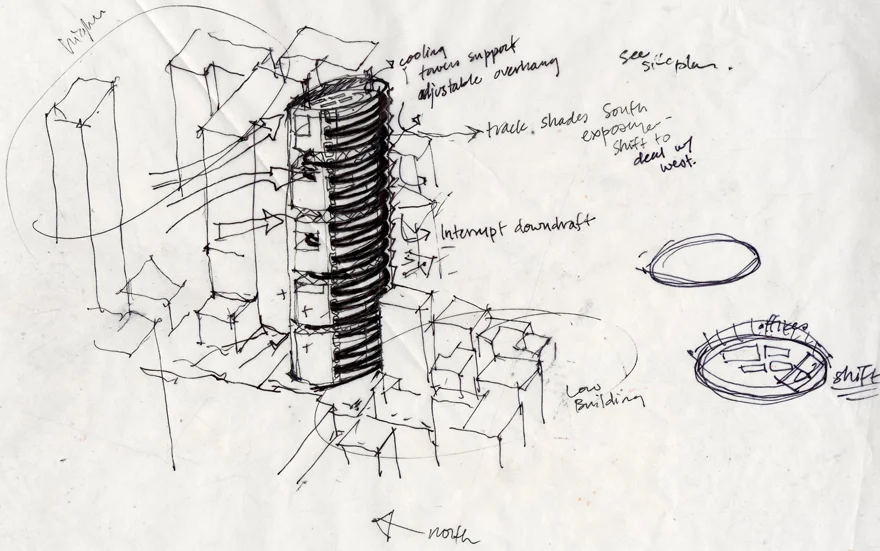 higher
cooling
towers support
adjustable overhang
see
site plan.
track. shades South
exposure -
shift to
deal w/
west.
Interrupt downdraft
offices
shift
Low
Building
north